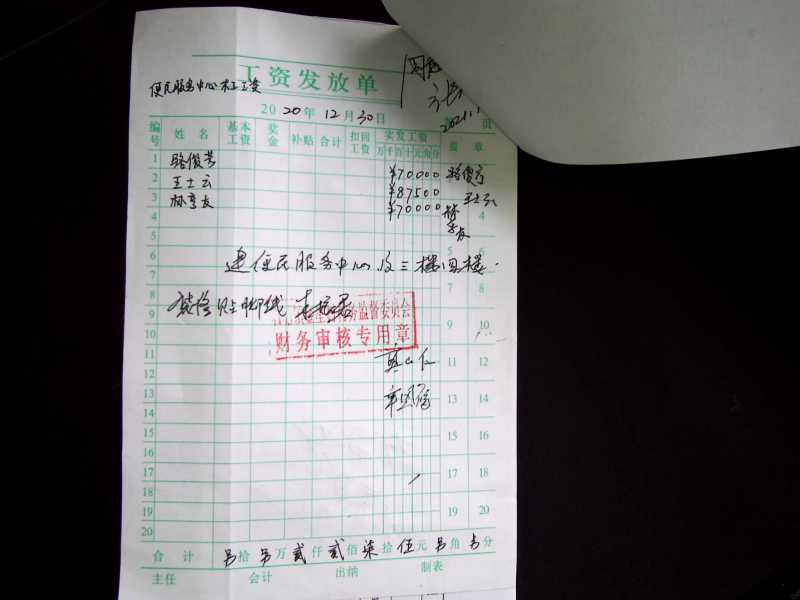 工资发放单
便民服务中心木工工资
2020年12月30日
页
编号 姓名 基本工资 奖金 补贴 合计 扣回工资 实发工资 盖章
万千百十元角分
1 骆俊芳 ¥70000
2 王士云 ¥87500 王士云
3 林亨友 ¥70000
4 4
5 5 6
6
7 7 8
8
9 9 10
10
11 11 12
12
13 13 14
14
15 15 16
16
17 17 18
18
19 19 20
20
建便民服务中心及三楼四楼
装修贴脚线
务监督委员会
财务审核专用章
合计 另拾另万贰仟贰佰柒拾伍元另角另分
主任 会计 出纳 制表